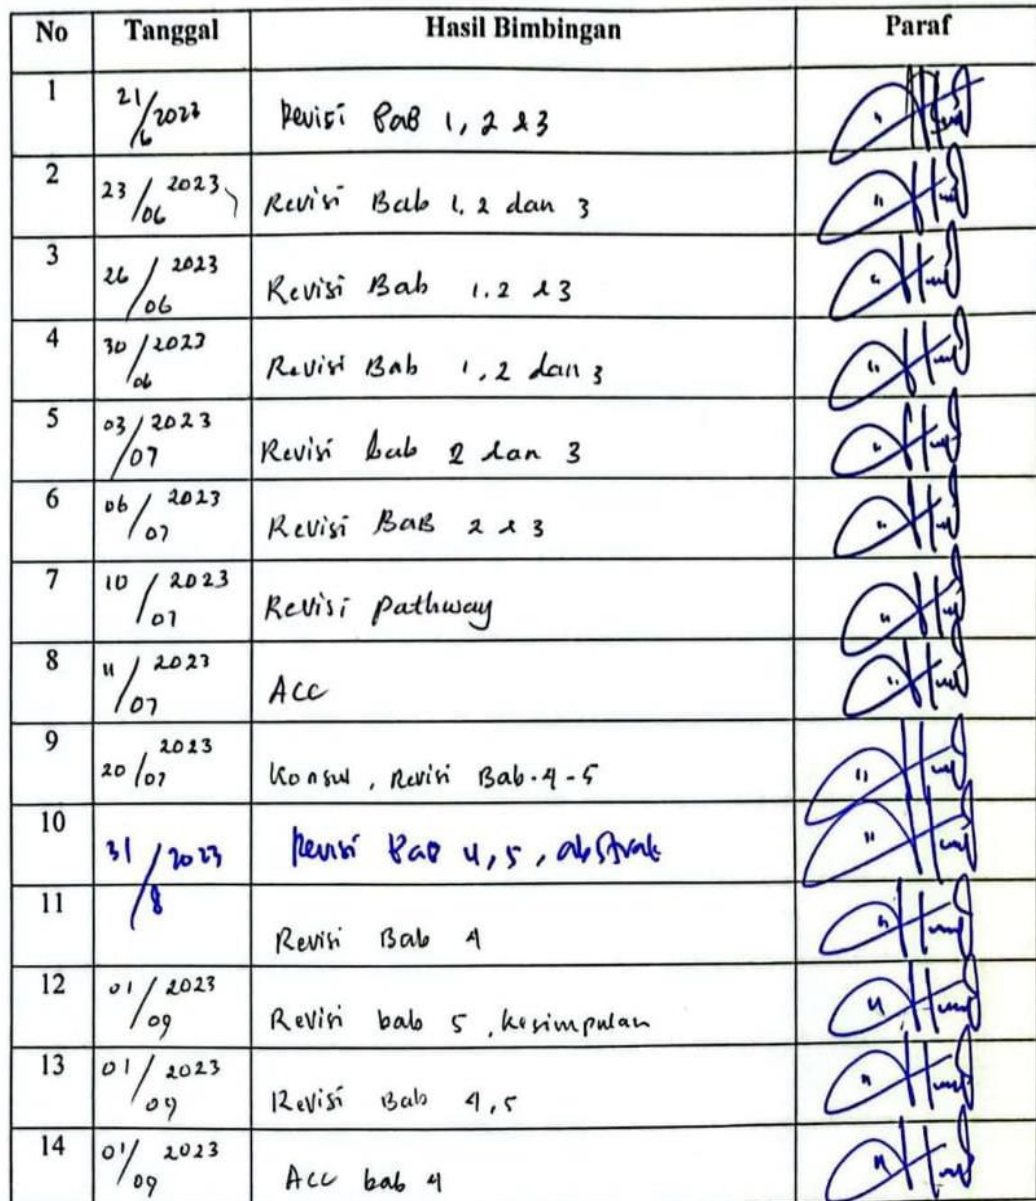 No Tanggal Hasil Bimbingan Paraf
1 21/6 2023 Revisi BaB 1, 2 & 3
2 23/06 2023 Revisi Bab 1, 2 dan 3
3 26/06 2023 Revisi Bab 1.2 & 3
4 30/06 2023 Revisi Bab 1, 2 dan 3
5 03/07 2023 Revisi bab 2 dan 3
6 06/07 2023 Revisi BaB 2 & 3
7 10/07 2023 Revisi pathway
8 11/07 2023 ACC
9 20/07 2023 Konsul, Revisi Bab-4-5
10 31/8 2023 Revisi BaB 4, 5, abstrak
11 Revisi Bab 4
12 01/09 2023 Revisi bab 5, kesimpulan
13 01/09 2023 Revisi Bab 4,5
14 01/09 2023 Acc bab 4